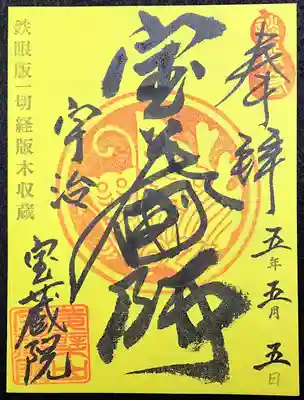 奉拝
五年五月五日
宝蔵師
宇治
宝蔵院
鉄眼版一切経版木収蔵